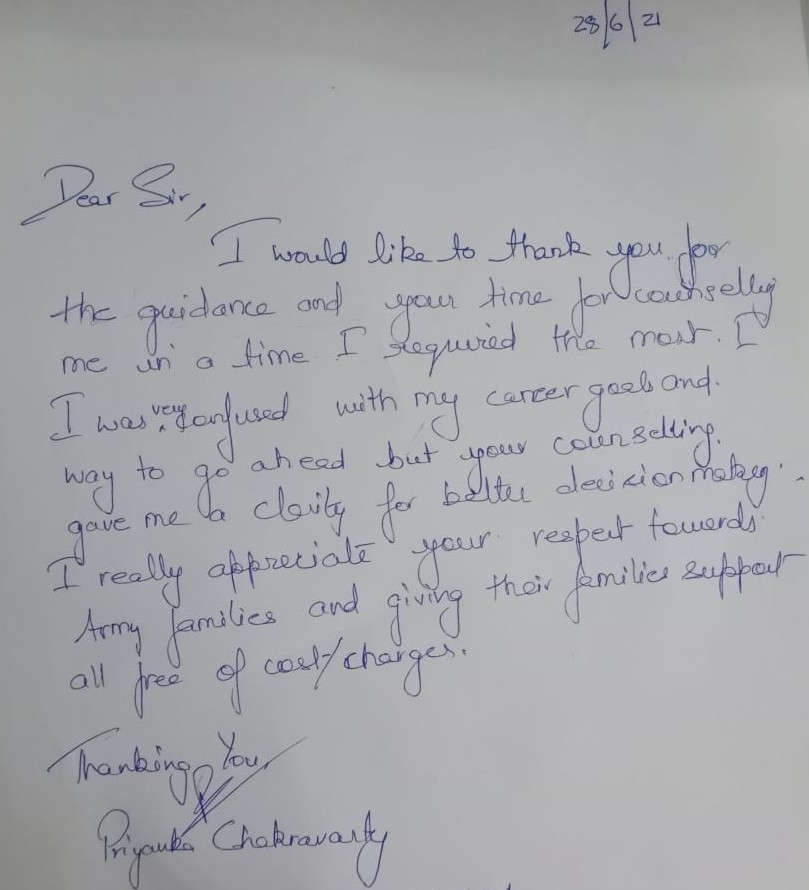 28/6/21
Dear Sir,
I would like to thank you for
the guidance and your time for counselling
me in a time I required the most. I
I was very confused with my career goals and
way to go ahead but your counselling
gave me a clarity for better decision making.
I really appreciate your respect towards
Army families and giving their families support
all free of cost/charges.
Thanking You,
Priyanka Chakravarty